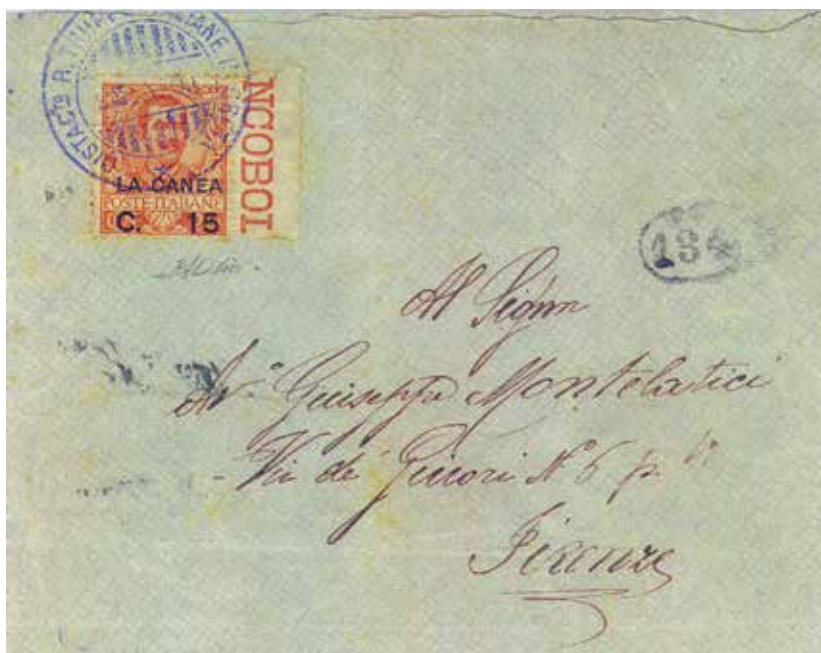 DISTAC^to R.
LA CANEA
POSTE ITALIANE
C. 15
NCOBOI
184
Al Signor
Av° Giuseppe Montelatici
Via de' Ginori N° 6 p.
Firenze